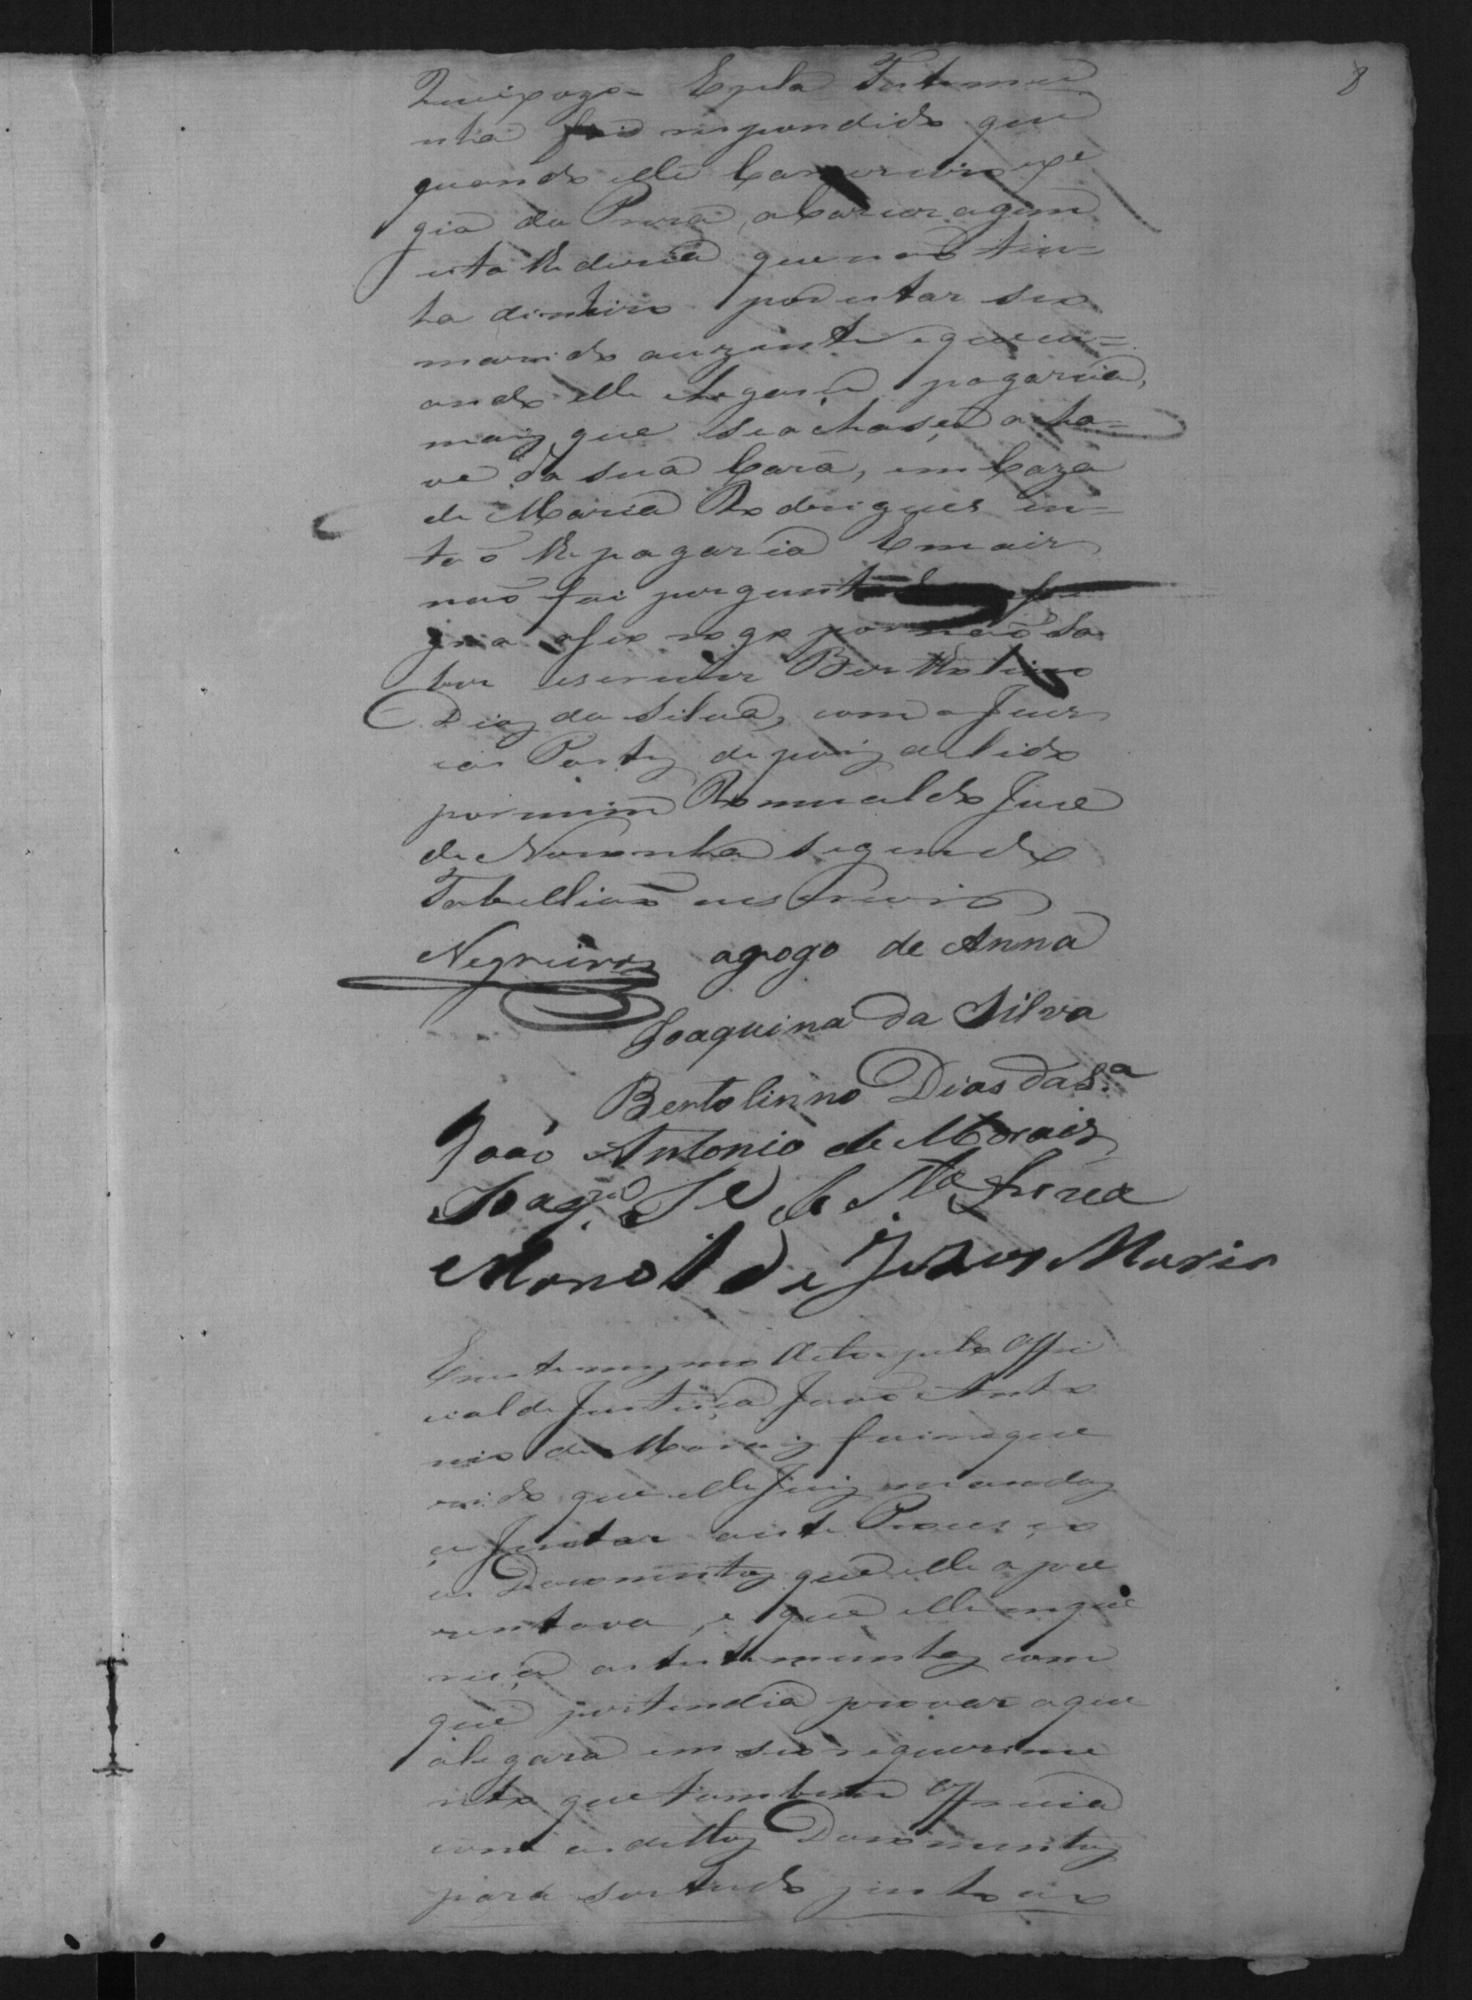 8
E pela Testemu
nha foi respondido que
quando elle Carcereiro exe
gia da Preza, a Carceragem
esta lhe dicera que não tin=
ha dinheiro por estar seo
marido auzente e que cu=
ando elle chegase pagaria,
maiz que se achase a cha=
ve da sua Caza, em Caza
de Maria Rodrigues en=
tão lhe pagaria E mais
não foi perguntado
a seo rogo por não sa
ber escrever Bertholino
Diaz da Silva, com o Juiz
eas Partez depoiz de lido
por mim Romualdo Juse
de Noronha segundo
Tabellião escrevi
Negreiros arogo de Anna
Joaquina da Silva
Bertolinno Dias da S.ª
João Antonio de Morais
Joaq.m Je de Sta
Manoel de Jezus Maria
E neste mesmo Acto pelo Offi
cial de Justiça João Anto
nio de Moraiz foi reque
rido que elle Juiz mandaz
e Juntar aeste Proceço
os Documentoz que elle apre
zentava, e que elle enque
riçe as testemunhaz com
que pertendia provar o que
alegara em seo requerime
nto que tambem Offrecia
com os dittoz Documentoz
para ser tudo junto ao